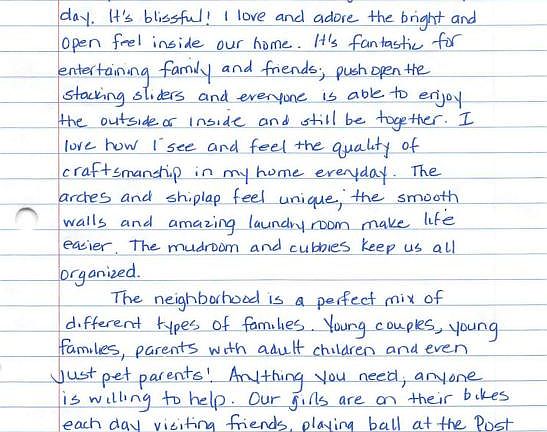 day. It's blissful! I love and adore the bright and
open feel inside our home. It's fantastic for
entertaining family and friends; push open the
stacking sliders and everyone is able to enjoy
the outside or inside and still be together. I
love how I see and feel the quality of
craftsmanship in my home everyday. The
arches and shiplap feel unique, the smooth
walls and amazing laundry room make life
easier. The mudroom and cubbies keep us all
organized.
The neighborhood is a perfect mix of
different types of families. Young couples, young
families, parents with adult children and even
just pet parents! Anything you need, anyone
is willing to help. Our girls are on their bikes
each day visiting friends, playing ball at the Post